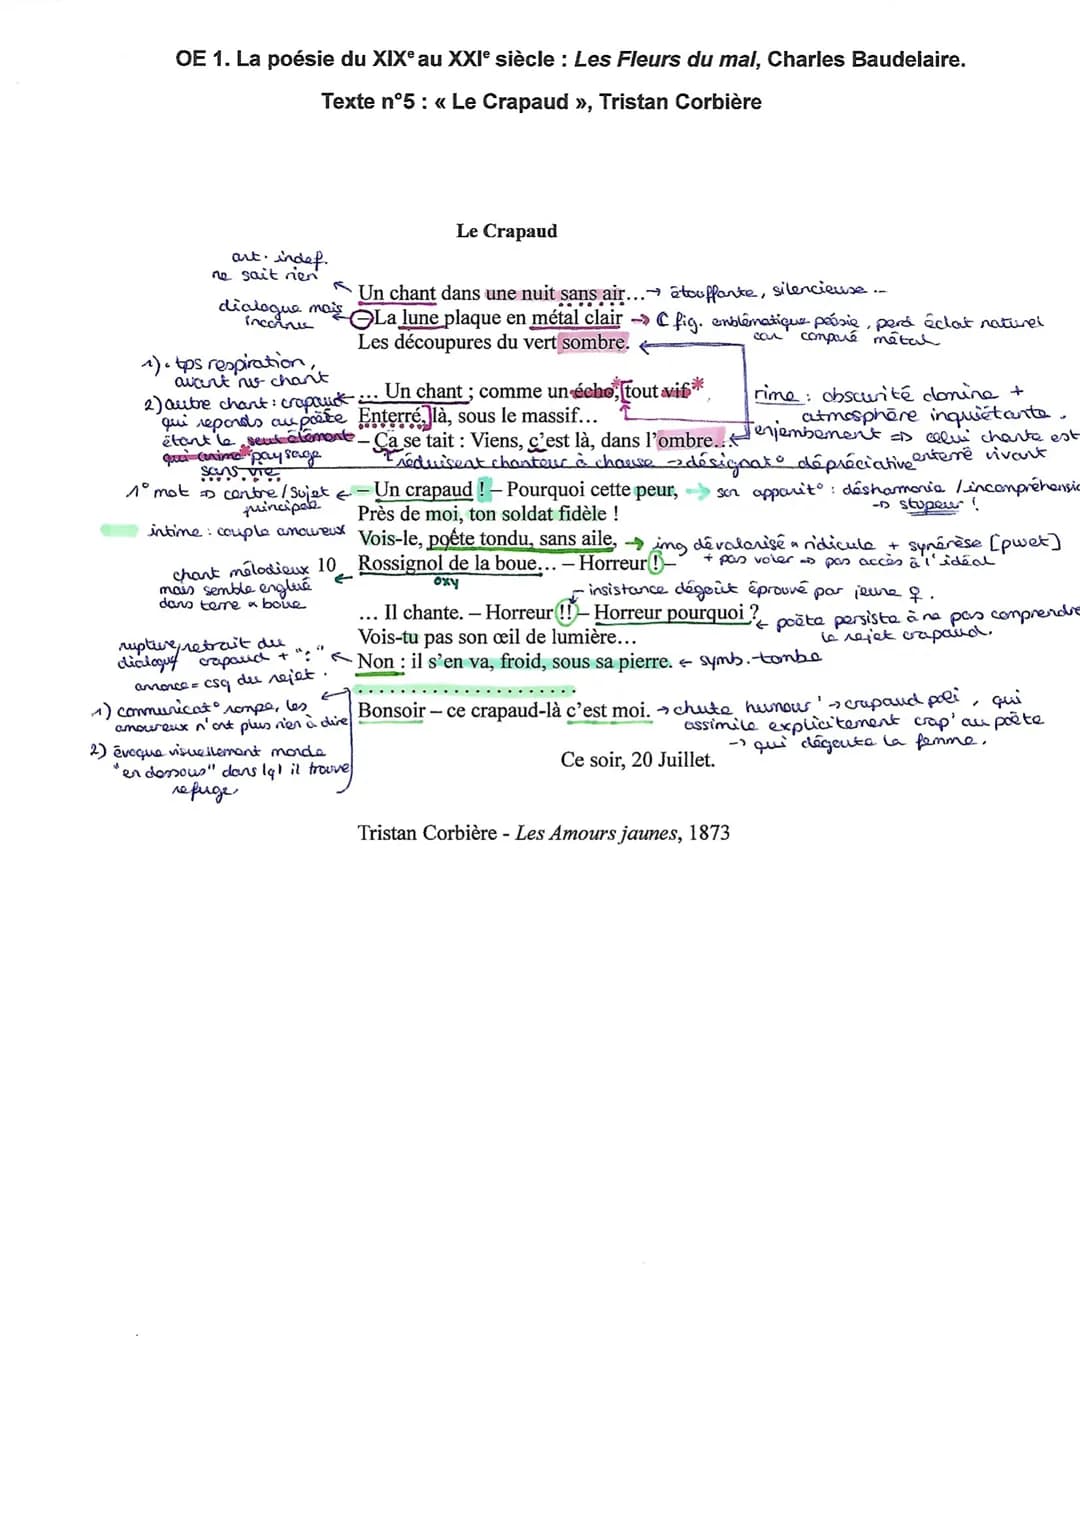 OE 1. La poésie du XIXe au XXIe siècle : Les Fleurs du mal, Charles Baudelaire.
Texte n°5 : « Le Crapaud », Tristan Corbière
Le Crapaud
art. indef.
ne sait rien
Un chant dans une nuit sans air... → étouffante, silencieuse ...
dialogue mais
inconnu
– La lune plaque en métal clair → fig. emblématique poésie, perd éclat naturel
car comparé métal
Les découpures du vert sombre.
1). tps respiration,
avant nv chant
2) autre chant : crapaud
qui reponds au poète
étant le seul élément
qui anime paysage
sans vie
... Un chant ; comme un écho, tout vif
Enterré, là, sous le massif...
– Ça se tait : Viens, c'est là, dans l'ombre...
rime : obscurité domine +
atmosphère inquiétante.
enjambement => celui chante est
enterré vivant
réduisent chanteur à chose → désignat° dépréciative
1° mot => centre / sujet
principale
– Un crapaud ! – Pourquoi cette peur, → son apparit° : désharmonie / incompréhensio
→ stupeur !
Près de moi, ton soldat fidèle !
intime : couple amoureux
Vois-le, poète tondu, sans aile, → img dévalorisé ridicule + synérèse [pwet]
+ pas voler => pas accès à l'idéal
chant mélodieux
mais semble englué
dans terre boue
10 Rossignol de la boue... – Horreur ! –
oxy
insistance dégoût éprouvé par jeune ♀.
... Il chante. – Horreur !! – Horreur pourquoi ?
poète persiste à ne pas comprendre
le rejet crapaud.
Vois-tu pas son œil de lumière...
rupture, retrait du
dialogue crapaud + ":"
annonce = csq du rejet.
Non : il s'en va, froid, sous sa pierre. ← symb. tombe
. . . . . . . . . . . . . . . . . . . . . .
1) communicat° rompe, les
amoureux n'ont plus rien à dire
2) évoque visuellement monde
"en dessous" dans lql il trouve
refuge.
Bonsoir – ce crapaud-là c'est moi. → chute humour → crapaud poli, qui
assimile explicitement crap' au poète
→ qui dégouta la femme.
Ce soir, 20 Juillet.
Tristan Corbière - Les Amours jaunes, 1873